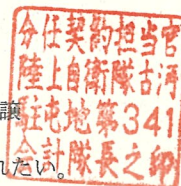 分任契約担当官
陸上自衛隊古河
駐屯地第341
会計隊長之印
譲
れたい。